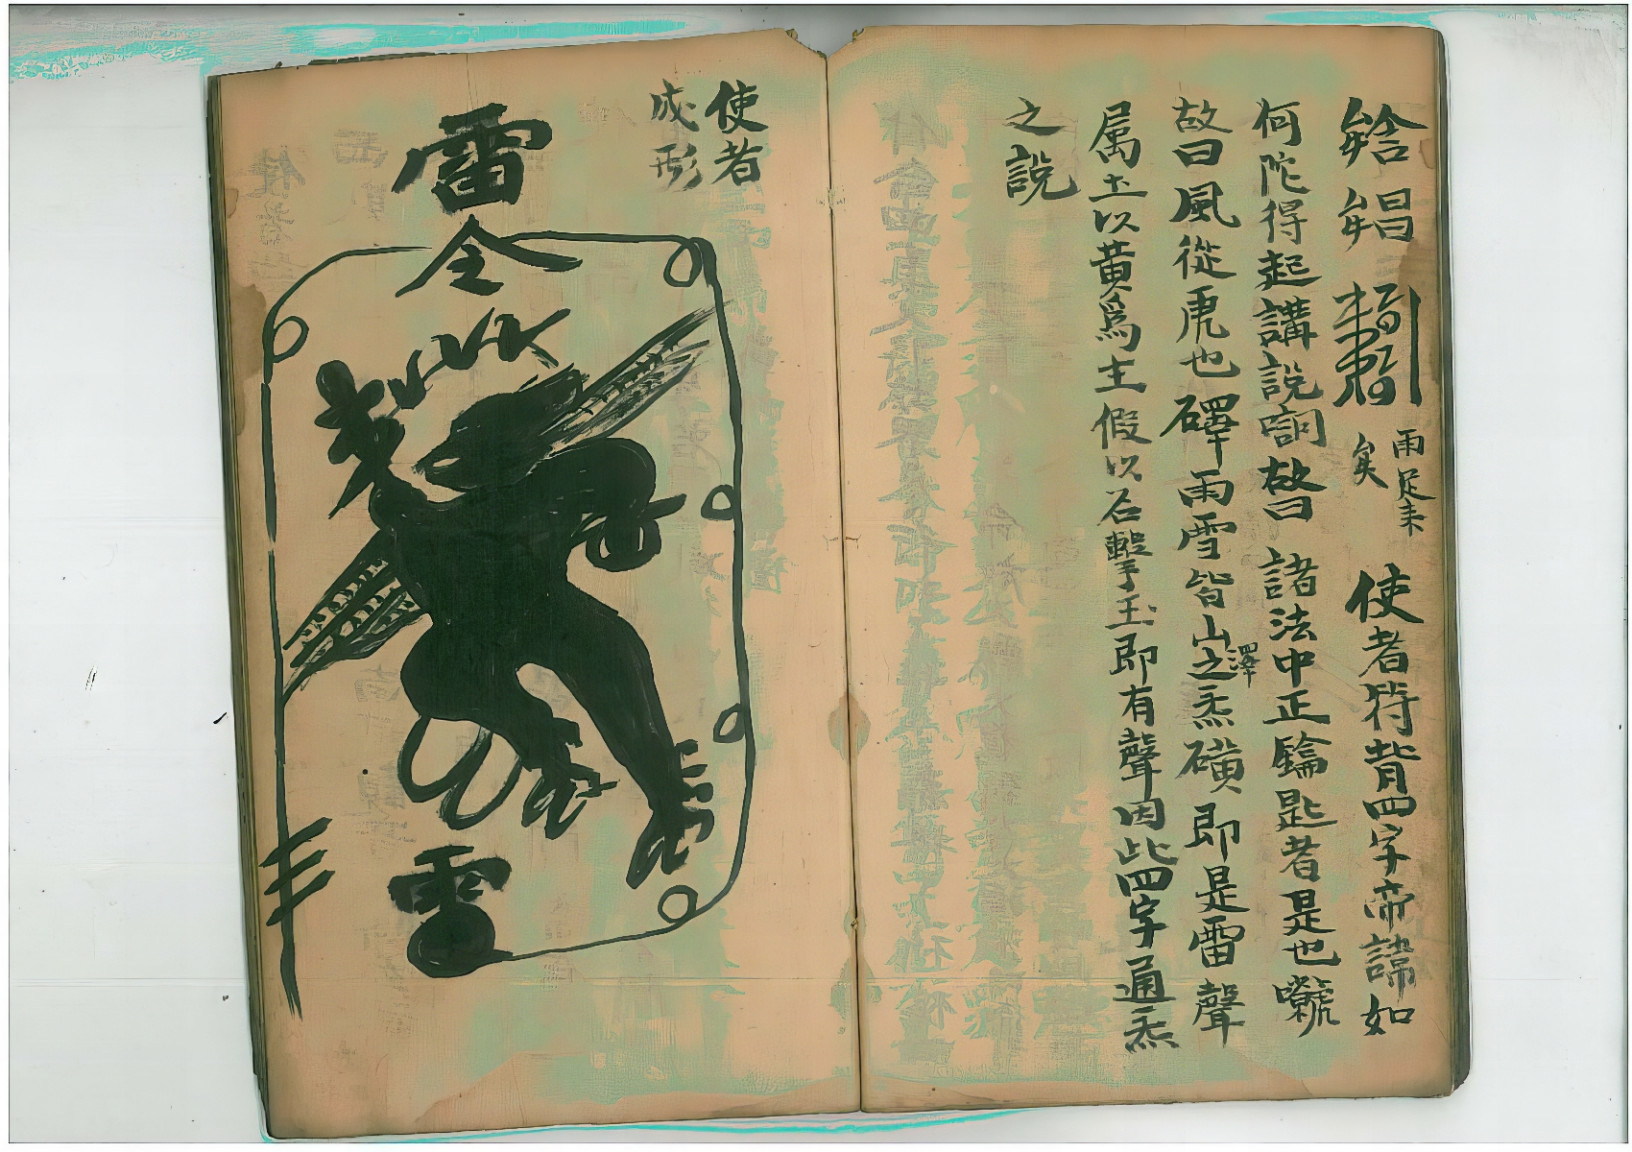 使者符背四字帝諱如
雨足耒
矣
何陀得起講說詞故曰諸法中正鑰匙者是也
故曰風從虎也礋雨雪皆山之炁磺即是雷聲
澤
屬土以黃爲主假以石擊玉即有聲因此四字通炁
之說
使者
成形
雷
令
雷